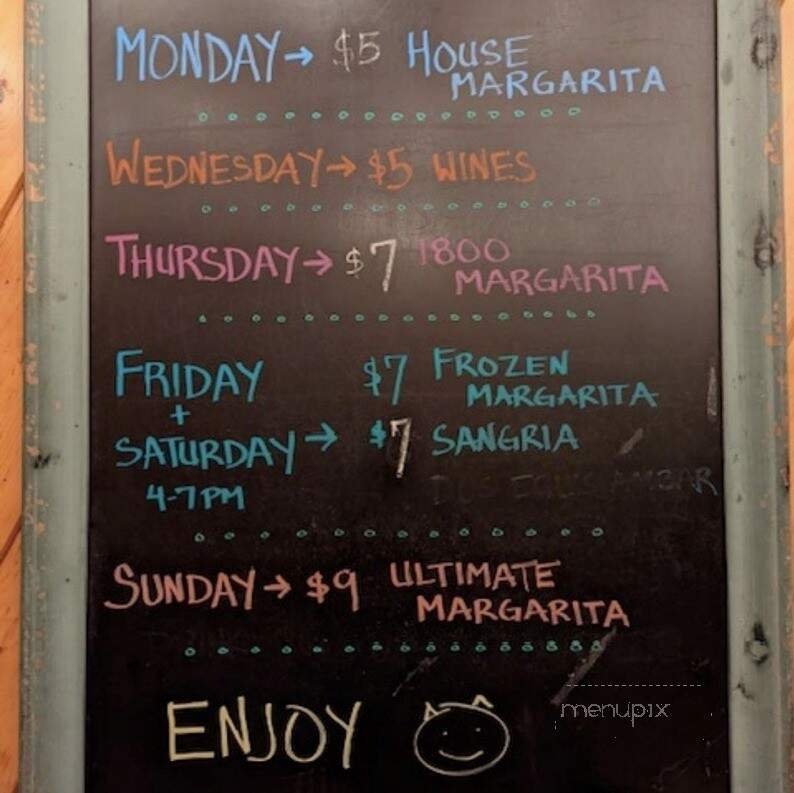 MONDAY → $5 HOUSE
MARGARITA
WEDNESDAY → $5 WINES
THURSDAY → $7 1800
MARGARITA
FRIDAY $7 FROZEN
+ MARGARITA
SATURDAY → $7 SANGRIA
4-7PM
SUNDAY → $9 ULTIMATE
MARGARITA
ENJOY
menupix